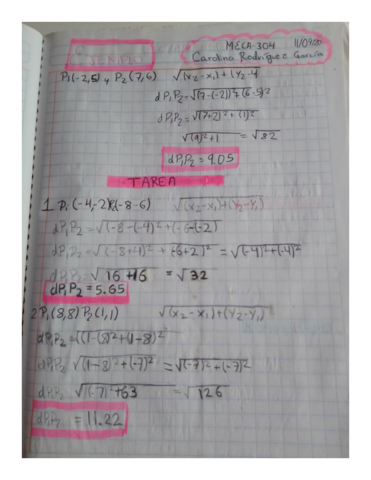 MECA-304
EJEMPLO Carolina Rodríguez García
P₁(-2,5) y P₂(7,6) √(x₂-x₁)+(y₂-y
dP₁P₂=√(7-(-2))²+(6-5)²
dP₁P₂=√(7+2)²+(1)²
√(9)²+1 = √82
dP₁P₂= 9.05
TAREA
1. P₁ (-4,-2)(-8-6) √(x₂-x₁)+(y₂-y₁)
dP₁P₂=√(-8-(-4)²+(-6-(-2)
dP₁P₂=√(-8+4)²+(-6+2)² =√(-4)²+(-4)²
dP₁P₂=√16+16 =√32
dP₁P₂= 5.65
2 P₁(8,8) P₂(1,1) √(x₂-x₁)+(y₂-y₁)
dP₁P₂=√(1-8)²+(1-8)²
dP₁P₂ √(1-8)²+(-7)² =√(-7)²+(-7)²
dP₁P₂=√(-7)²+63 =√126
dP₁P₂ = 11.22